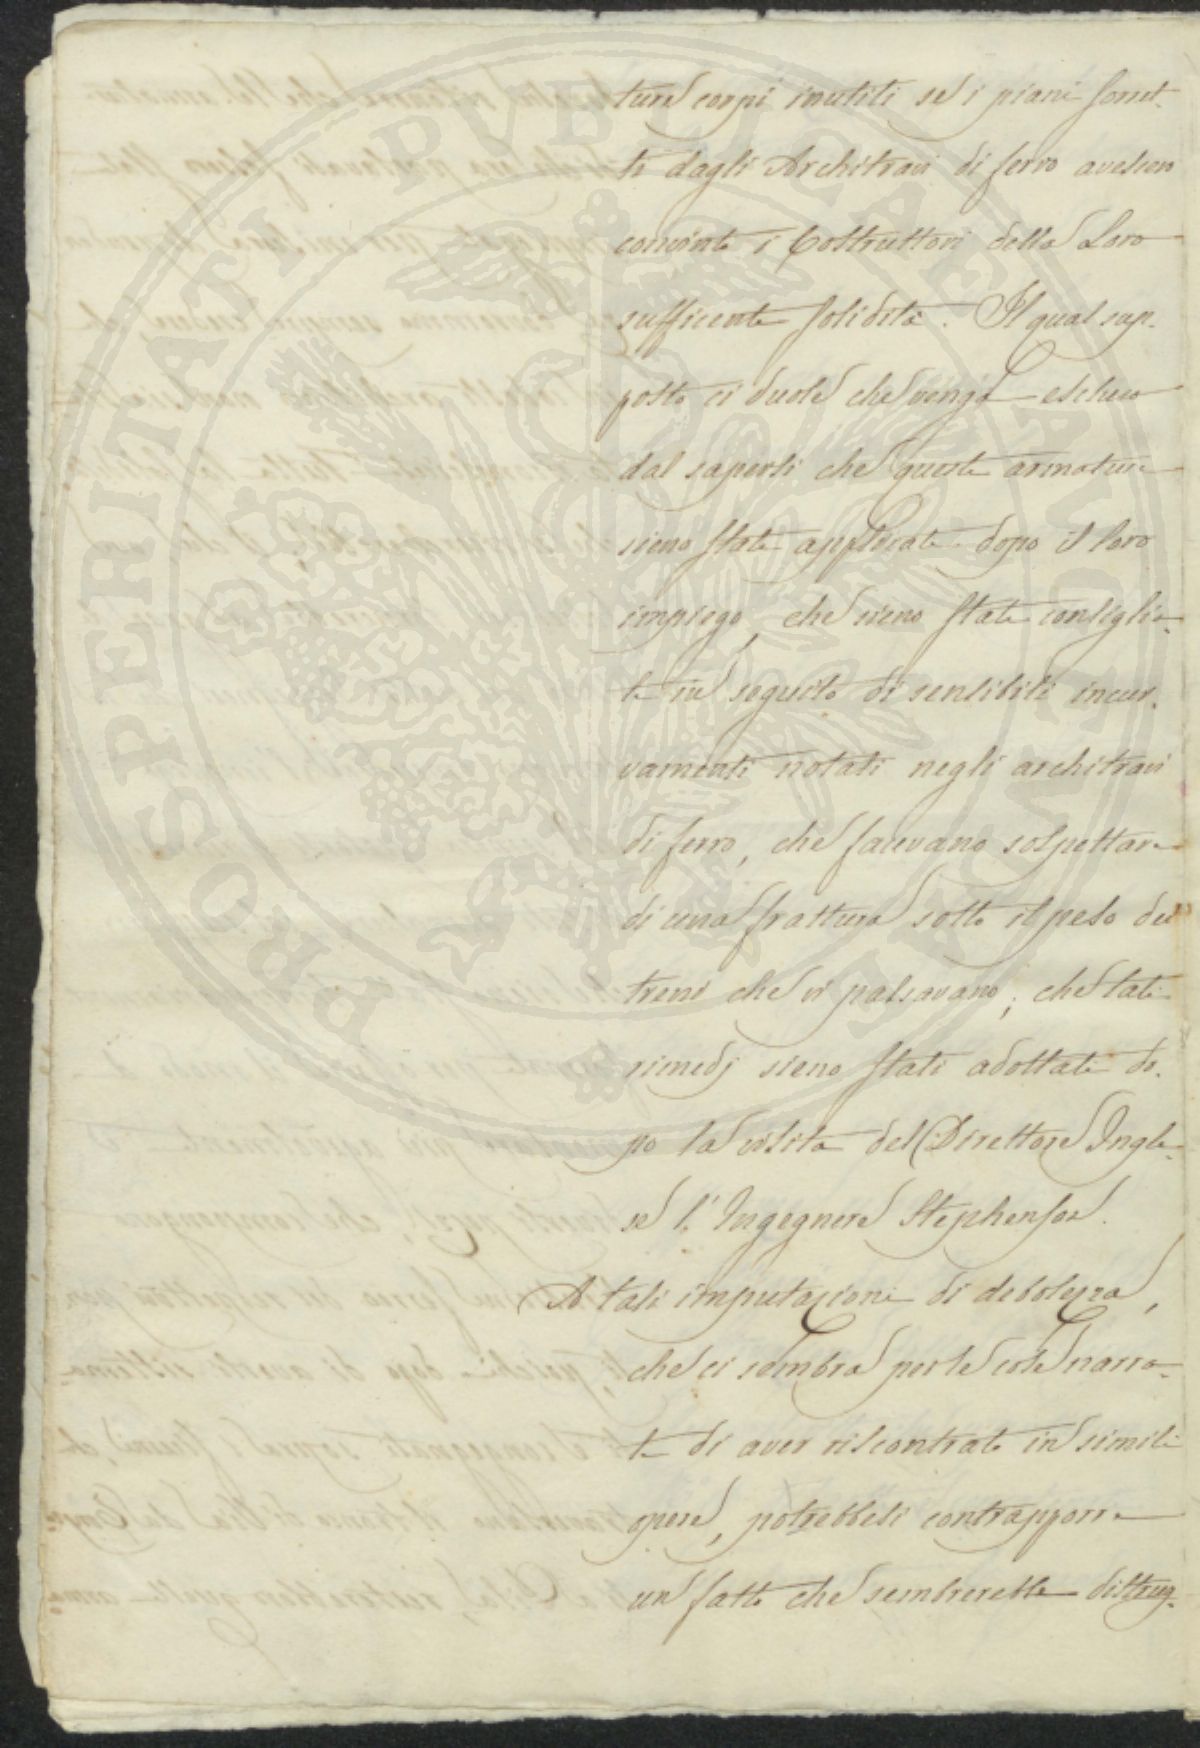 ture corpi inutili se i piani sorret-
ti dagli Architravi di ferro avessero
convinto i Costruttori della Loro
sufficente solidità. Il qual sup-
posto ci duole che venga escluso
dal sapersi che queste armature
sieno state applicate dopo il loro
impiego, che sieno state consiglia-
te in seguito di sensibili incur-
vamenti notati negli architravi
di ferro, che facevano sospettare
di una frattura sotto il peso dei
treni che vi passavano; che tali
rimedj sieno stati adottati do-
po la visita del Direttore Ingle-
se l'Ingegnere Stephenson.
A tali imputazioni di debolezza,
che ci sembra per le cose narra-
te di aver riscontrato in simili
opere, potrebbesi contrapporre
un fatto che sembrerebbe distrug-
PROSPERITATI PVBLICAE AVGENDAE